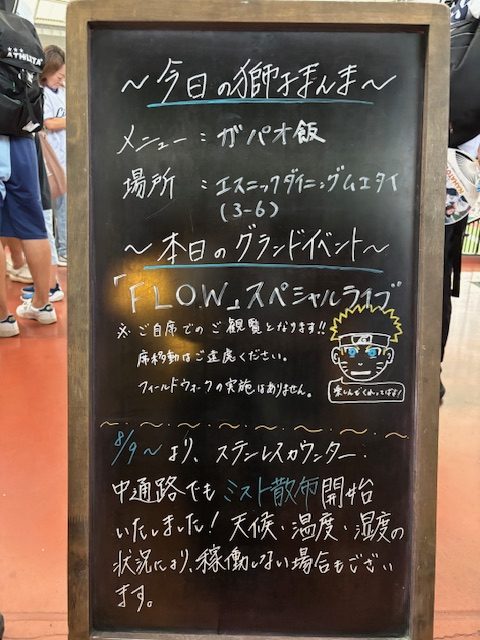 ATHLETA
～今日の獅子まんま～
メニュー：ガパオ飯
場所：エスニックダイニングムエタイ
(3-6)
～本日のグランドイベント～
「FLOW」スペシャルライブ
※ご自席でのご観覧となります!!
席移動はご遠慮ください。
フィールドウォークの実施はありません。
楽しんでくれってばよ!
8/9～より、ステンレスカウンター・
中通路でもミスト散布開始
いたしました！天候・温度・湿度の
状況により、稼働しない場合もござい
ます。